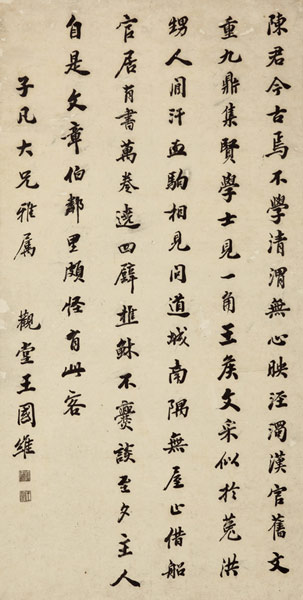 陳君今古焉不學清渭無心映涇濁漢官舊文
重九鼎集賢學士見一角王侯文采似於菟洪
甥人間汗血駒相見問道城南隅無屋止借船
官居有書萬卷遶四壁樵蘇不爨談至夕主人
自是文章伯鄰里頗怪有此客
子凡大兄雅屬 觀堂王國維